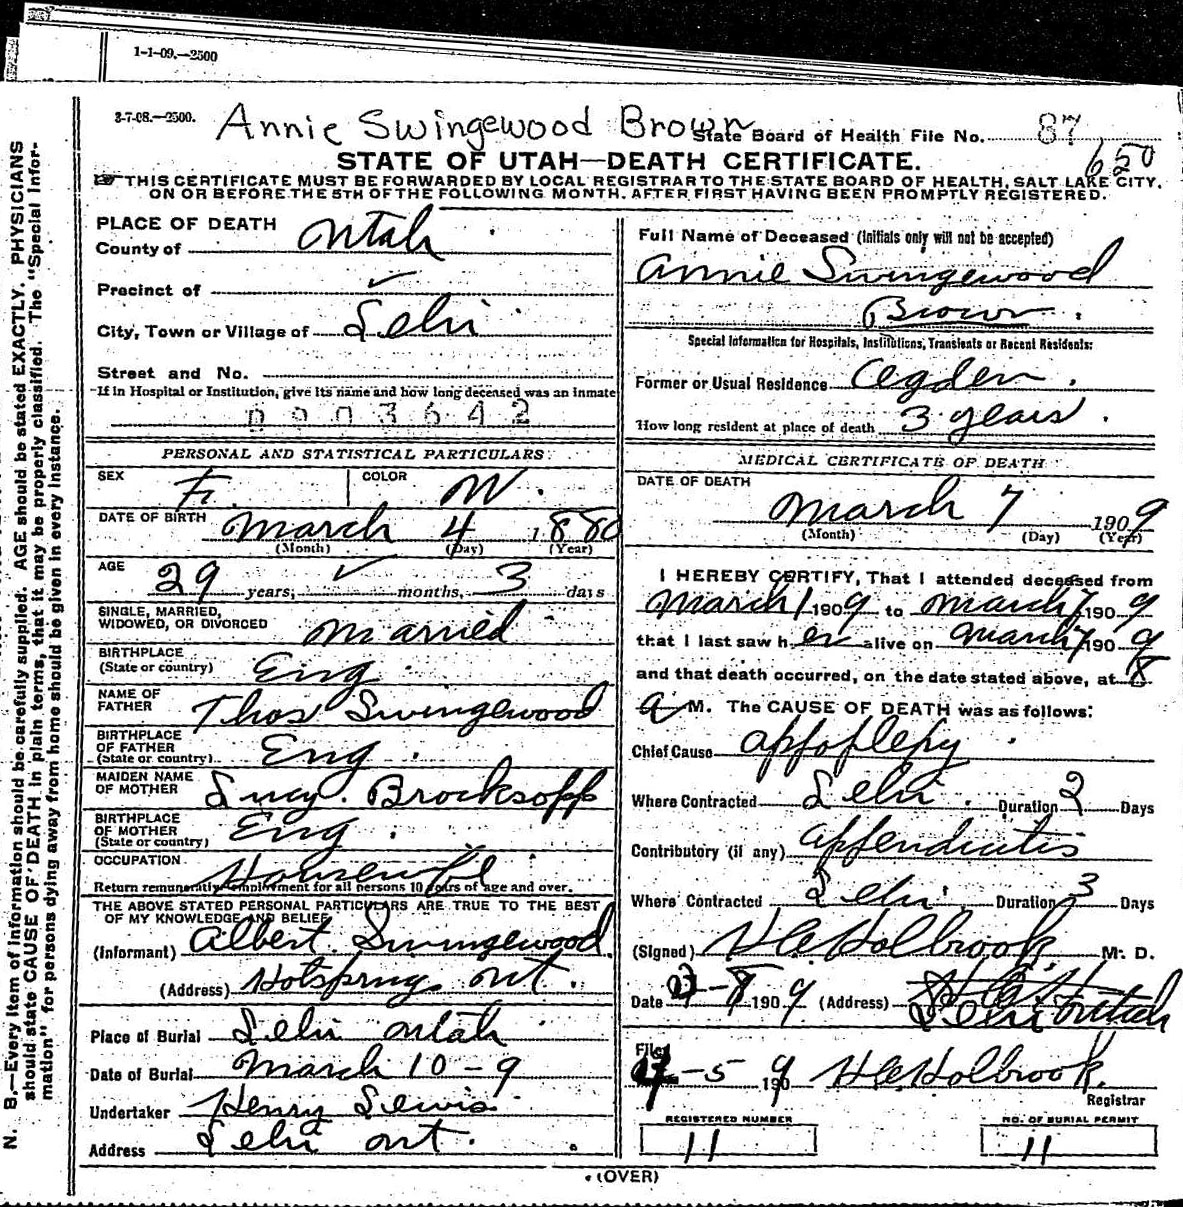 1-1-09.—2500
3-7-08.—2500.
Annie Swingewood Brown
State Board of Health File No. 87
650
STATE OF UTAH—DEATH CERTIFICATE.
THIS CERTIFICATE MUST BE FORWARDED BY LOCAL REGISTRAR TO THE STATE BOARD OF HEALTH, SALT LAKE CITY,
ON OR BEFORE THE 5TH OF THE FOLLOWING MONTH, AFTER FIRST HAVING BEEN PROMPTLY REGISTERED.
PLACE OF DEATH
County of Utah
Precinct of
City, Town or Village of Lehi
Street and No.
If in Hospital or Institution, give its name and how long deceased was an inmate
0903642
PERSONAL AND STATISTICAL PARTICULARS
SEX F. COLOR W.
DATE OF BIRTH March 4 1880
(Month) (Day) (Year)
AGE 29 years, months, 3 days
SINGLE, MARRIED,
WIDOWED, OR DIVORCED Married
BIRTHPLACE
(State or country) Eng.
NAME OF
FATHER Thos Swingewood
BIRTHPLACE
OF FATHER
(State or country) Eng.
MAIDEN NAME
OF MOTHER Lucy. Brocksopp
BIRTHPLACE
OF MOTHER
(State or country) Eng.
OCCUPATION Housewife
Return remunerative employment for all persons 10 years of age and over.
THE ABOVE STATED PERSONAL PARTICULARS ARE TRUE TO THE BEST
OF MY KNOWLEDGE AND BELIEF
(Informant) Albert. Swingewood
(Address) Hotsprings Ut.
Place of Burial Lehi Utah
Date of Burial March 10-9
Undertaker Henry Lewis
Address Lehi Ut.
Full Name of Deceased (Initials only will not be accepted)
Annie Swingewood
Brown.
Special Information for Hospitals, Institutions, Transients or Recent Residents:
Former or Usual Residence Ogden.
How long resident at place of death 3 years.
MEDICAL CERTIFICATE OF DEATH
DATE OF DEATH
March 7 1909
(Month) (Day) (Year)
I HEREBY CERTIFY, That I attended deceased from
March 1 1909 to March 7 1909
that I last saw her alive on March 7 1909
and that death occurred, on the date stated above, at 8
a M. The CAUSE OF DEATH was as follows:
Chief Cause appoplexy.
Where Contracted Lehi. Duration 2 Days
Contributory (if any) appendicitis
Where Contracted Lehi. Duration 3 Days
(Signed) H.E. Holbrook. M. D.
Date 1909 (Address) Lehi Utah
Filed
-5 1909 H.E. Holbrook.
Registrar
REGISTERED NUMBER NO. OF BURIAL PERMIT
11 11
(OVER)
N. B.—Every item of information should be carefully supplied. AGE should be stated EXACTLY. PHYSICIANS
should state CAUSE OF DEATH in plain terms, that it may be properly classified. The "Special Infor-
mation" for persons dying away from home should be given in every instance.